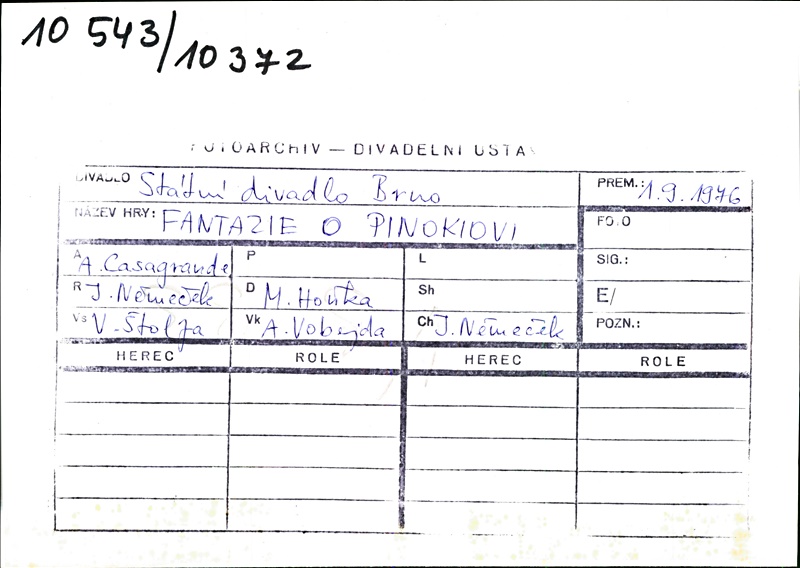 10 543/10 372
FOTOARCHIV — DIVADELNÍ ÚSTAV
DIVADLO Státní divadlo Brno PREM.: 1.9.1976
NÁZEV HRY: FANTAZIE O PINOKIOVI FOTO
A A. Casagrande P L SIG.:
R J. Němeček D M. Houfka Sh E/
Vs V. Štolfa Vk A. Vobejda Ch J. Němeček POZN.:
HEREC ROLE HEREC ROLE